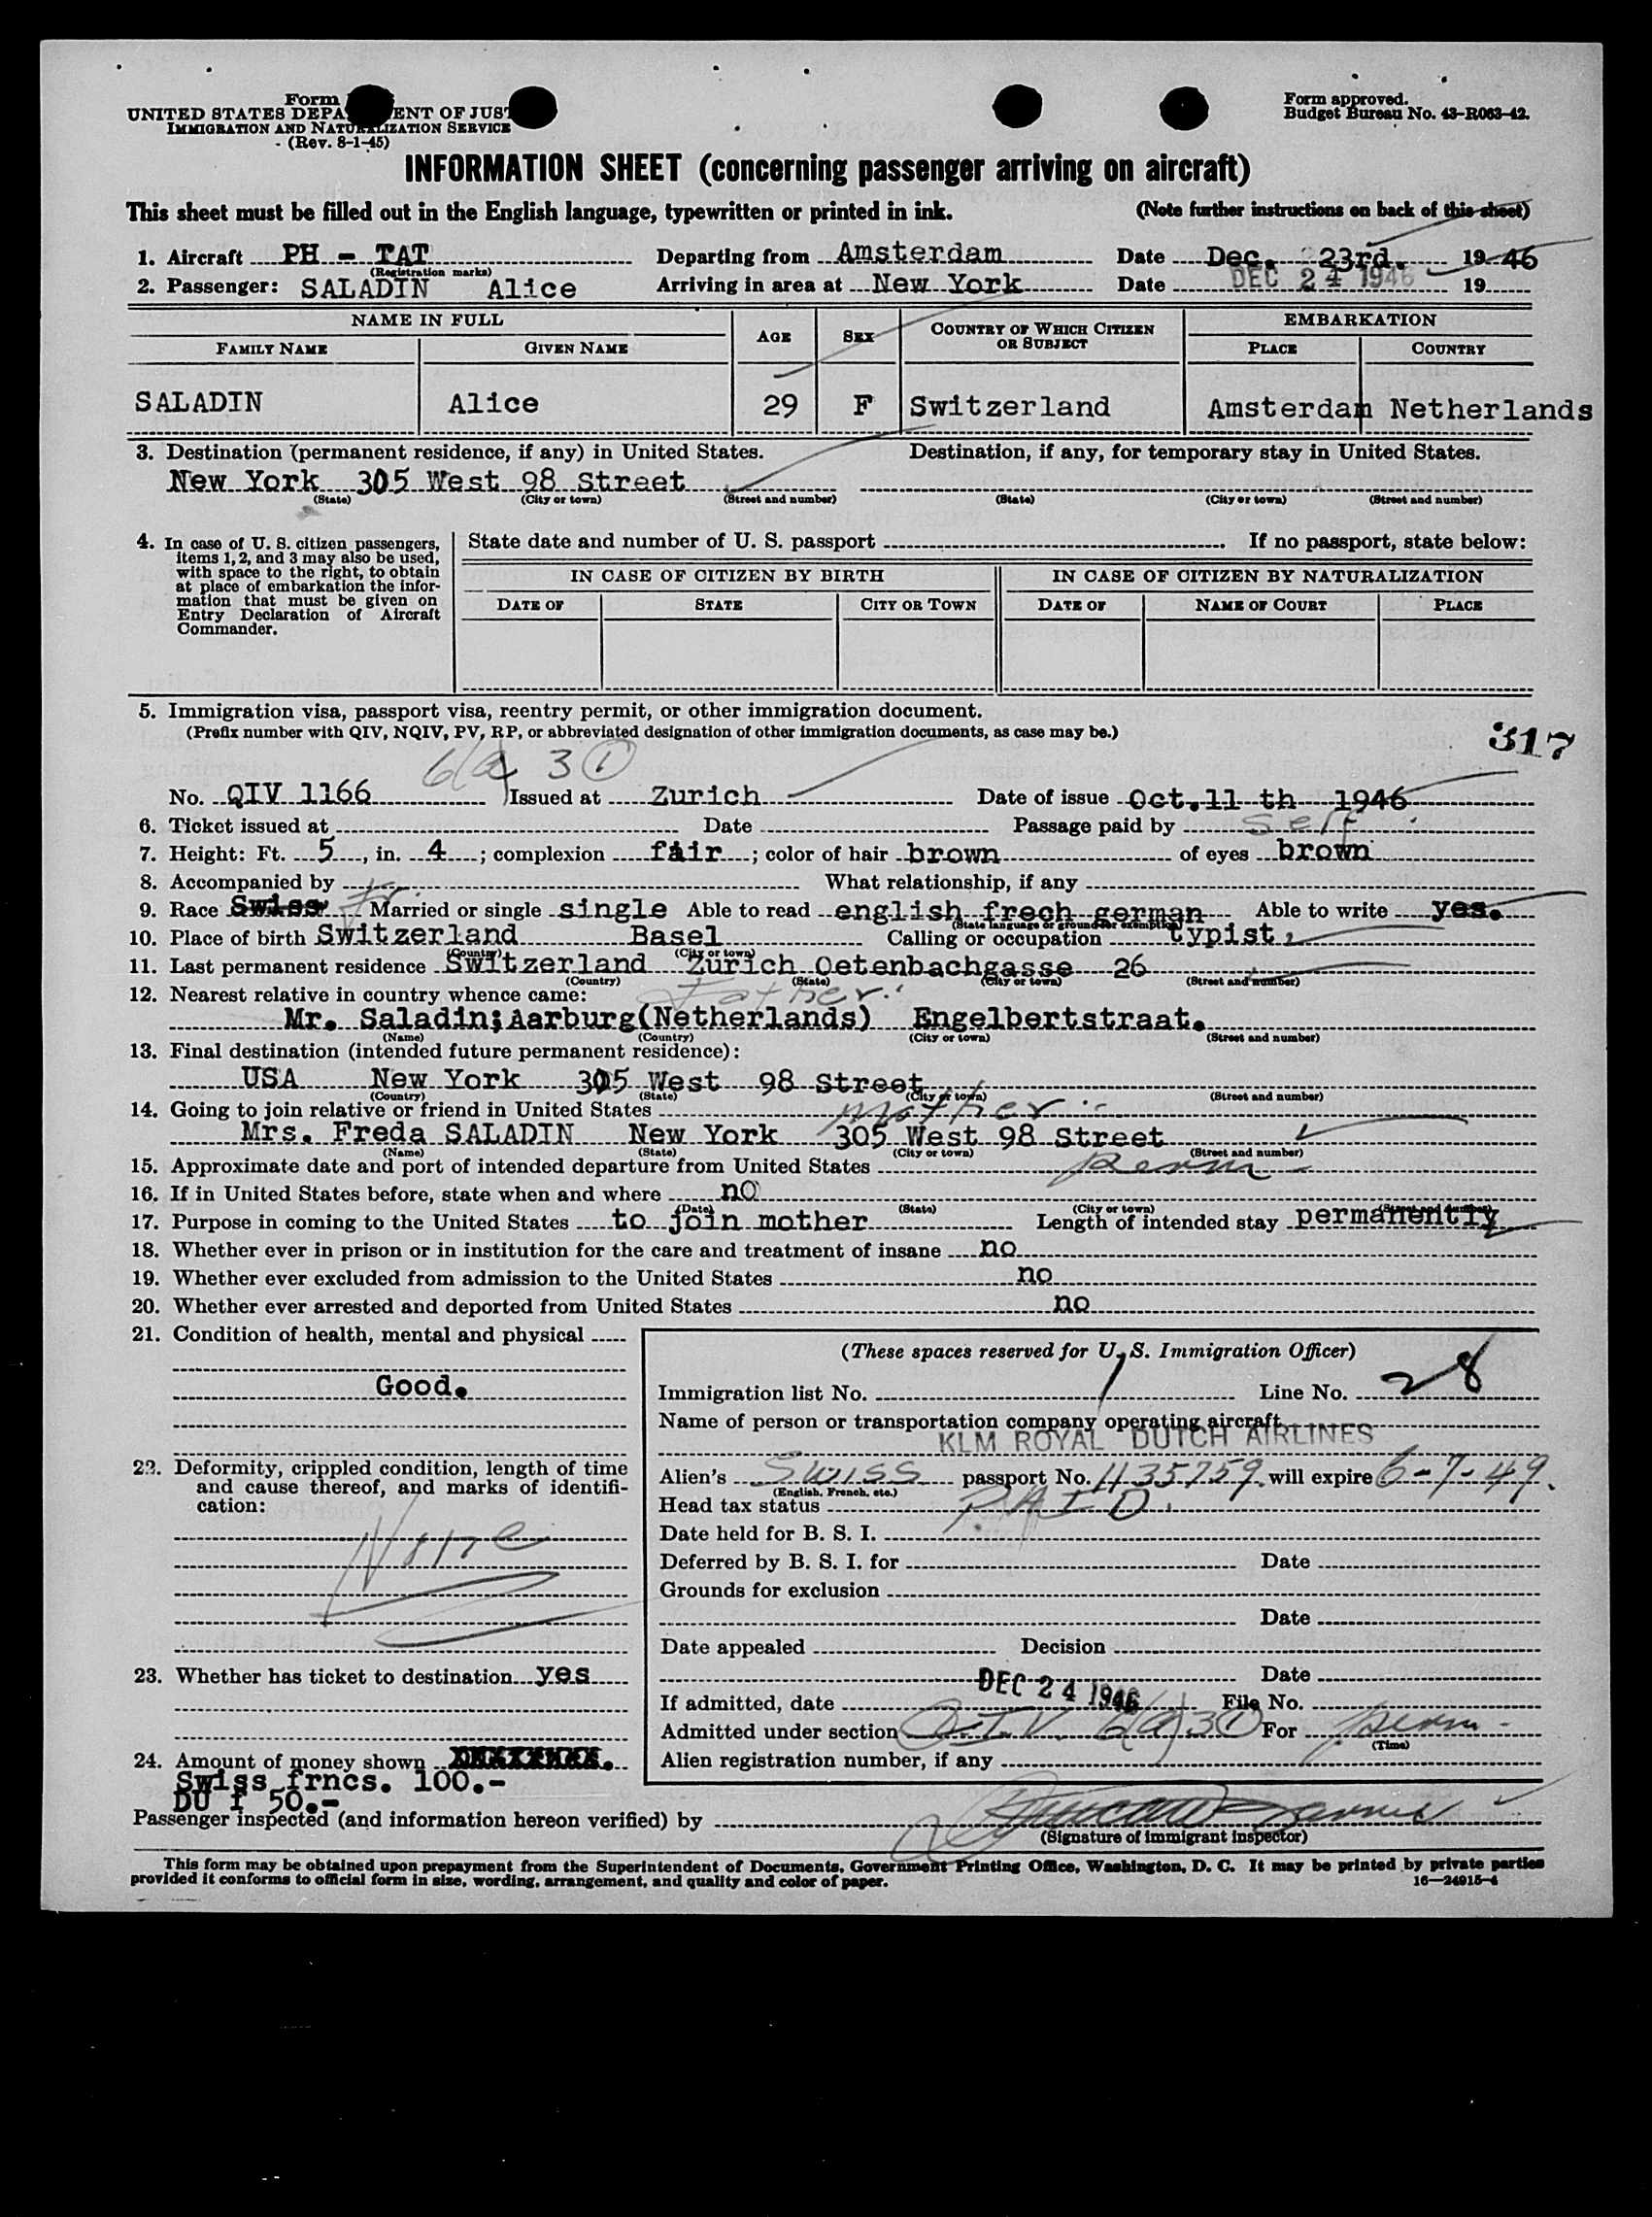 Form
UNITED STATES DEPA ENT OF JUST
IMMIGRATION AND NATURALIZATION SERVICE
(Rev. 8-1-45)
Form approved.
Budget Bureau No. 43-R063-42.
INFORMATION SHEET (concerning passenger arriving on aircraft)
This sheet must be filled out in the English language, typewritten or printed in ink. (Note further instructions on back of this sheet)
1. Aircraft PH - TAT Departing from Amsterdam Date Dec. 23rd. 19 46
(Registration marks)
2. Passenger: SALADIN Alice Arriving in area at New York Date DEC 24 1946 19
NAME IN FULL AGE SEX COUNTRY OF WHICH CITIZEN OR SUBJECT EMBARKATION
FAMILY NAME GIVEN NAME PLACE COUNTRY
SALADIN Alice 29 F Switzerland Amsterdam Netherlands
3. Destination (permanent residence, if any) in United States. Destination, if any, for temporary stay in United States.
New York 305 West 98 Street
(State) (City or town) (Street and number) (State) (City or town) (Street and number)
4. In case of U. S. citizen passengers, items 1, 2, and 3 may also be used, with space to the right, to obtain at place of embarkation the information that must be given on Entry Declaration of Aircraft Commander.
State date and number of U. S. passport If no passport, state below:
IN CASE OF CITIZEN BY BIRTH IN CASE OF CITIZEN BY NATURALIZATION
DATE OF STATE CITY OR TOWN DATE OF NAME OF COURT PLACE
5. Immigration visa, passport visa, reentry permit, or other immigration document.
(Prefix number with QIV, NQIV, PV, RP, or abbreviated designation of other immigration documents, as case may be.)
317
6(a) 3 (1)
No. QIV 1166 Issued at Zurich Date of issue Oct.11 th 1946
6. Ticket issued at Date Passage paid by self
7. Height: Ft. 5, in. 4; complexion fair; color of hair brown of eyes brown
8. Accompanied by What relationship, if any
9. Race Swiss Fr. Married or single single Able to read english frech german Able to write yes.
(State language or ground for exemption)
10. Place of birth Switzerland Basel Calling or occupation typist,
(Country) (City or town)
11. Last permanent residence Switzerland Zurich Oetenbachgasse 26
(Country) (State) (City or town) (Street and number)
12. Nearest relative in country whence came: Father:
Mr. Saladin;Aarburg(Netherlands) Engelbertstraat.
(Name) (Country) (City or town) (Street and number)
13. Final destination (intended future permanent residence):
USA New York 305 West 98 Street
(Country) (State) (City or town) (Street and number)
14. Going to join relative or friend in United States mother:
Mrs. Freda SALADIN New York 305 West 98 Street
(Name) (State) (City or town) (Street and number)
15. Approximate date and port of intended departure from United States Perm
16. If in United States before, state when and where no
(Date) (State) (City or town) (Street and number)
17. Purpose in coming to the United States to join mother Length of intended stay permanently
18. Whether ever in prison or in institution for the care and treatment of insane no
19. Whether ever excluded from admission to the United States no
20. Whether ever arrested and deported from United States no
21. Condition of health, mental and physical
Good.
22. Deformity, crippled condition, length of time and cause thereof, and marks of identification:
None
23. Whether has ticket to destination yes
24. Amount of money shown
Swiss frncs. 100.-
DU f 50.-
(These spaces reserved for U. S. Immigration Officer)
Immigration list No. 1 Line No. 28
Name of person or transportation company operating aircraft
KLM ROYAL DUTCH AIRLINES
Alien's Swiss passport No. 1135759 will expire 6-7-49.
(English, French, etc.)
Head tax status PAID.
Date held for B. S. I.
Deferred by B. S. I. for Date
Grounds for exclusion
Date
Date appealed Decision
Date
If admitted, date DEC 24 1946 File No.
Admitted under section Q.I.V. 6(a)3(1) For perm.
(Time)
Alien registration number, if any
Passenger inspected (and information hereon verified) by
(Signature of immigrant inspector)
This form may be obtained upon prepayment from the Superintendent of Documents, Government Printing Office, Washington, D. C. It may be printed by private parties
provided it conforms to official form in size, wording, arrangement, and quality and color of paper. 16—24915-4